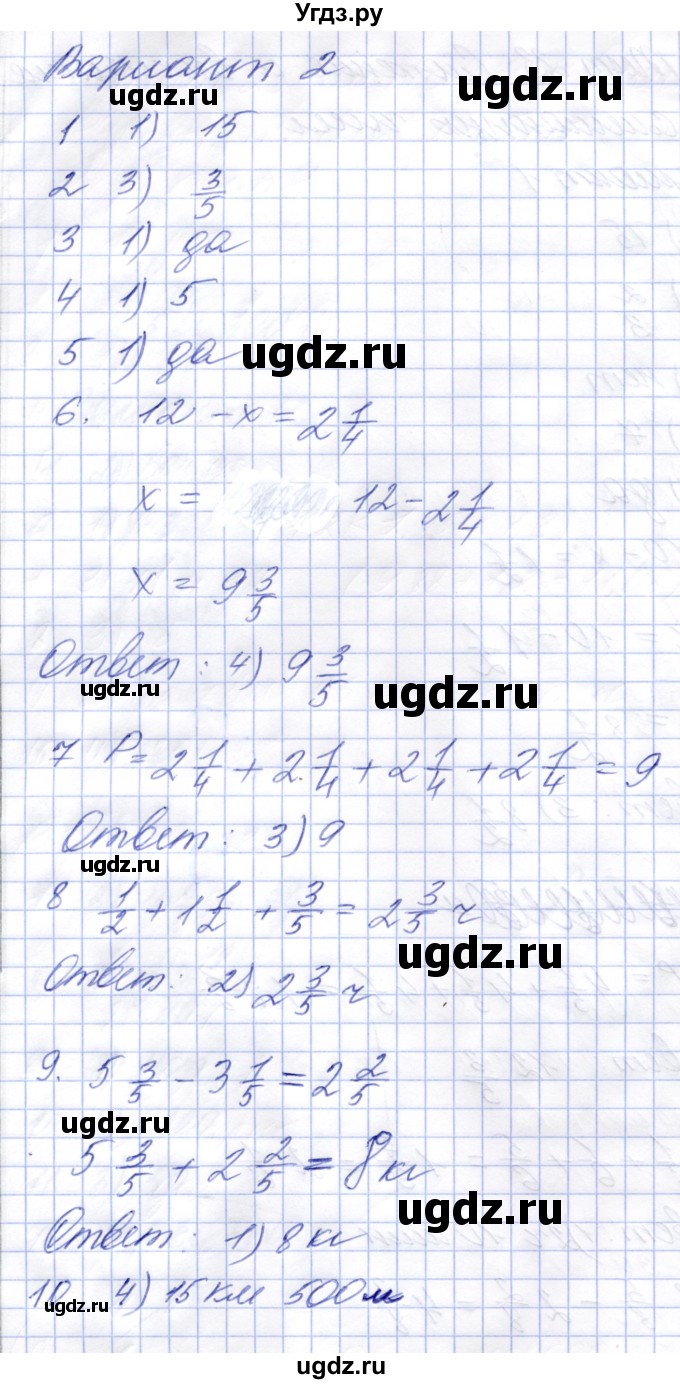 Угдз.ру
Вариант 2
ugdz.ru ugdz.ru
1 1) 15
2 3) 3/5
3 1) да
4 1) 5
5 1) да ugdz.ru
6. 12 - x = 2 1/4
x = 12 - 2 1/4
x = 9 3/5
Ответ: 4) 9 3/5
ugdz.ru ugdz.ru
7 P = 2 1/4 + 2 1/4 + 2 1/4 + 2 1/4 = 9
Ответ: 3) 9
8 1/2 + 1 1/2 + 3/5 = 2 3/5 ч
ugdz.ru
Ответ: 2) 2 3/5 ч
9. 5 3/5 - 3 1/5 = 2 2/5
ugdz.ru
5 3/5 + 2 2/5 = 8 кг
ugdz.ru
Ответ: 1) 8 кг
10 4) 15 км 500 м
ugdz.ru ugdz.ru
ugdz.ru